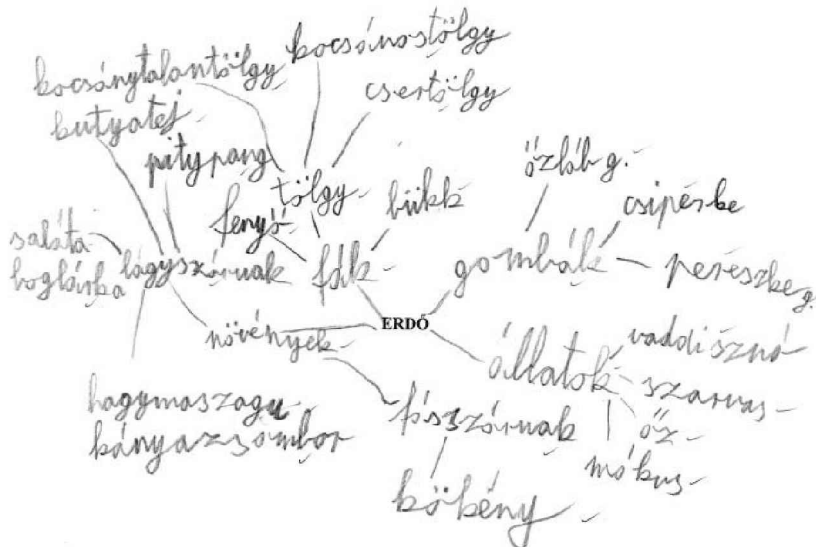 kocsánytalantölgy
kocsánostölgy
csertölgy
kutyatej
pitypang
tölgy
bükk
fenyő
fák
őzláb g.
csipérke
gombák
pereszke g.
saláta
boglárka
lágyszárúak
növények
ERDŐ
állatok
vaddisznó
szarvas
őz
mókus
hagymaszagu
kányazsombor
fásszárúak
kökény